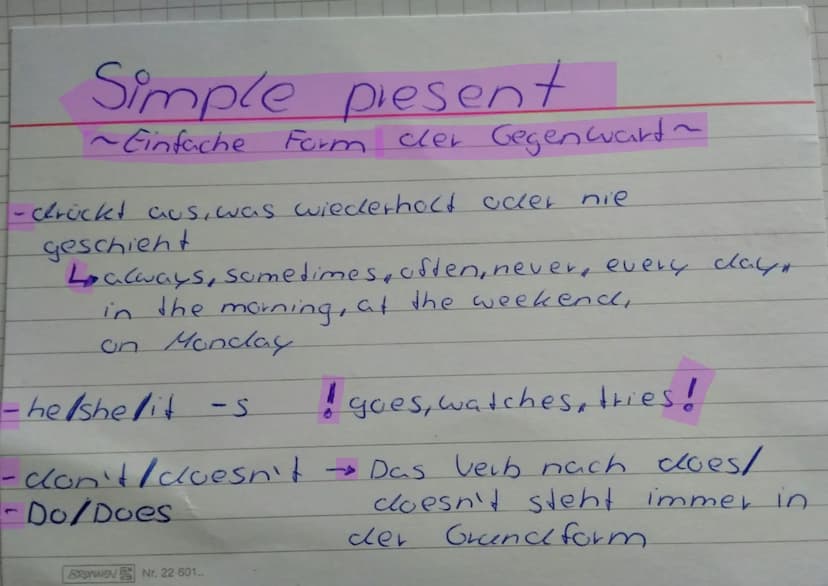 Simple present
~Einfache Form der Gegenwart~
-drückt aus, was wiederholt oder nie
geschieht
↳always, sometimes, often, never, every day,
in the morning, at the weekend,
on Monday
-he/she/it -s ! goes, watches, tries!
-don't/doesn't → Das Verb nach does/
-Do/Does doesn't steht immer in
der Grundform
BRUNNEN Nr. 22 601..